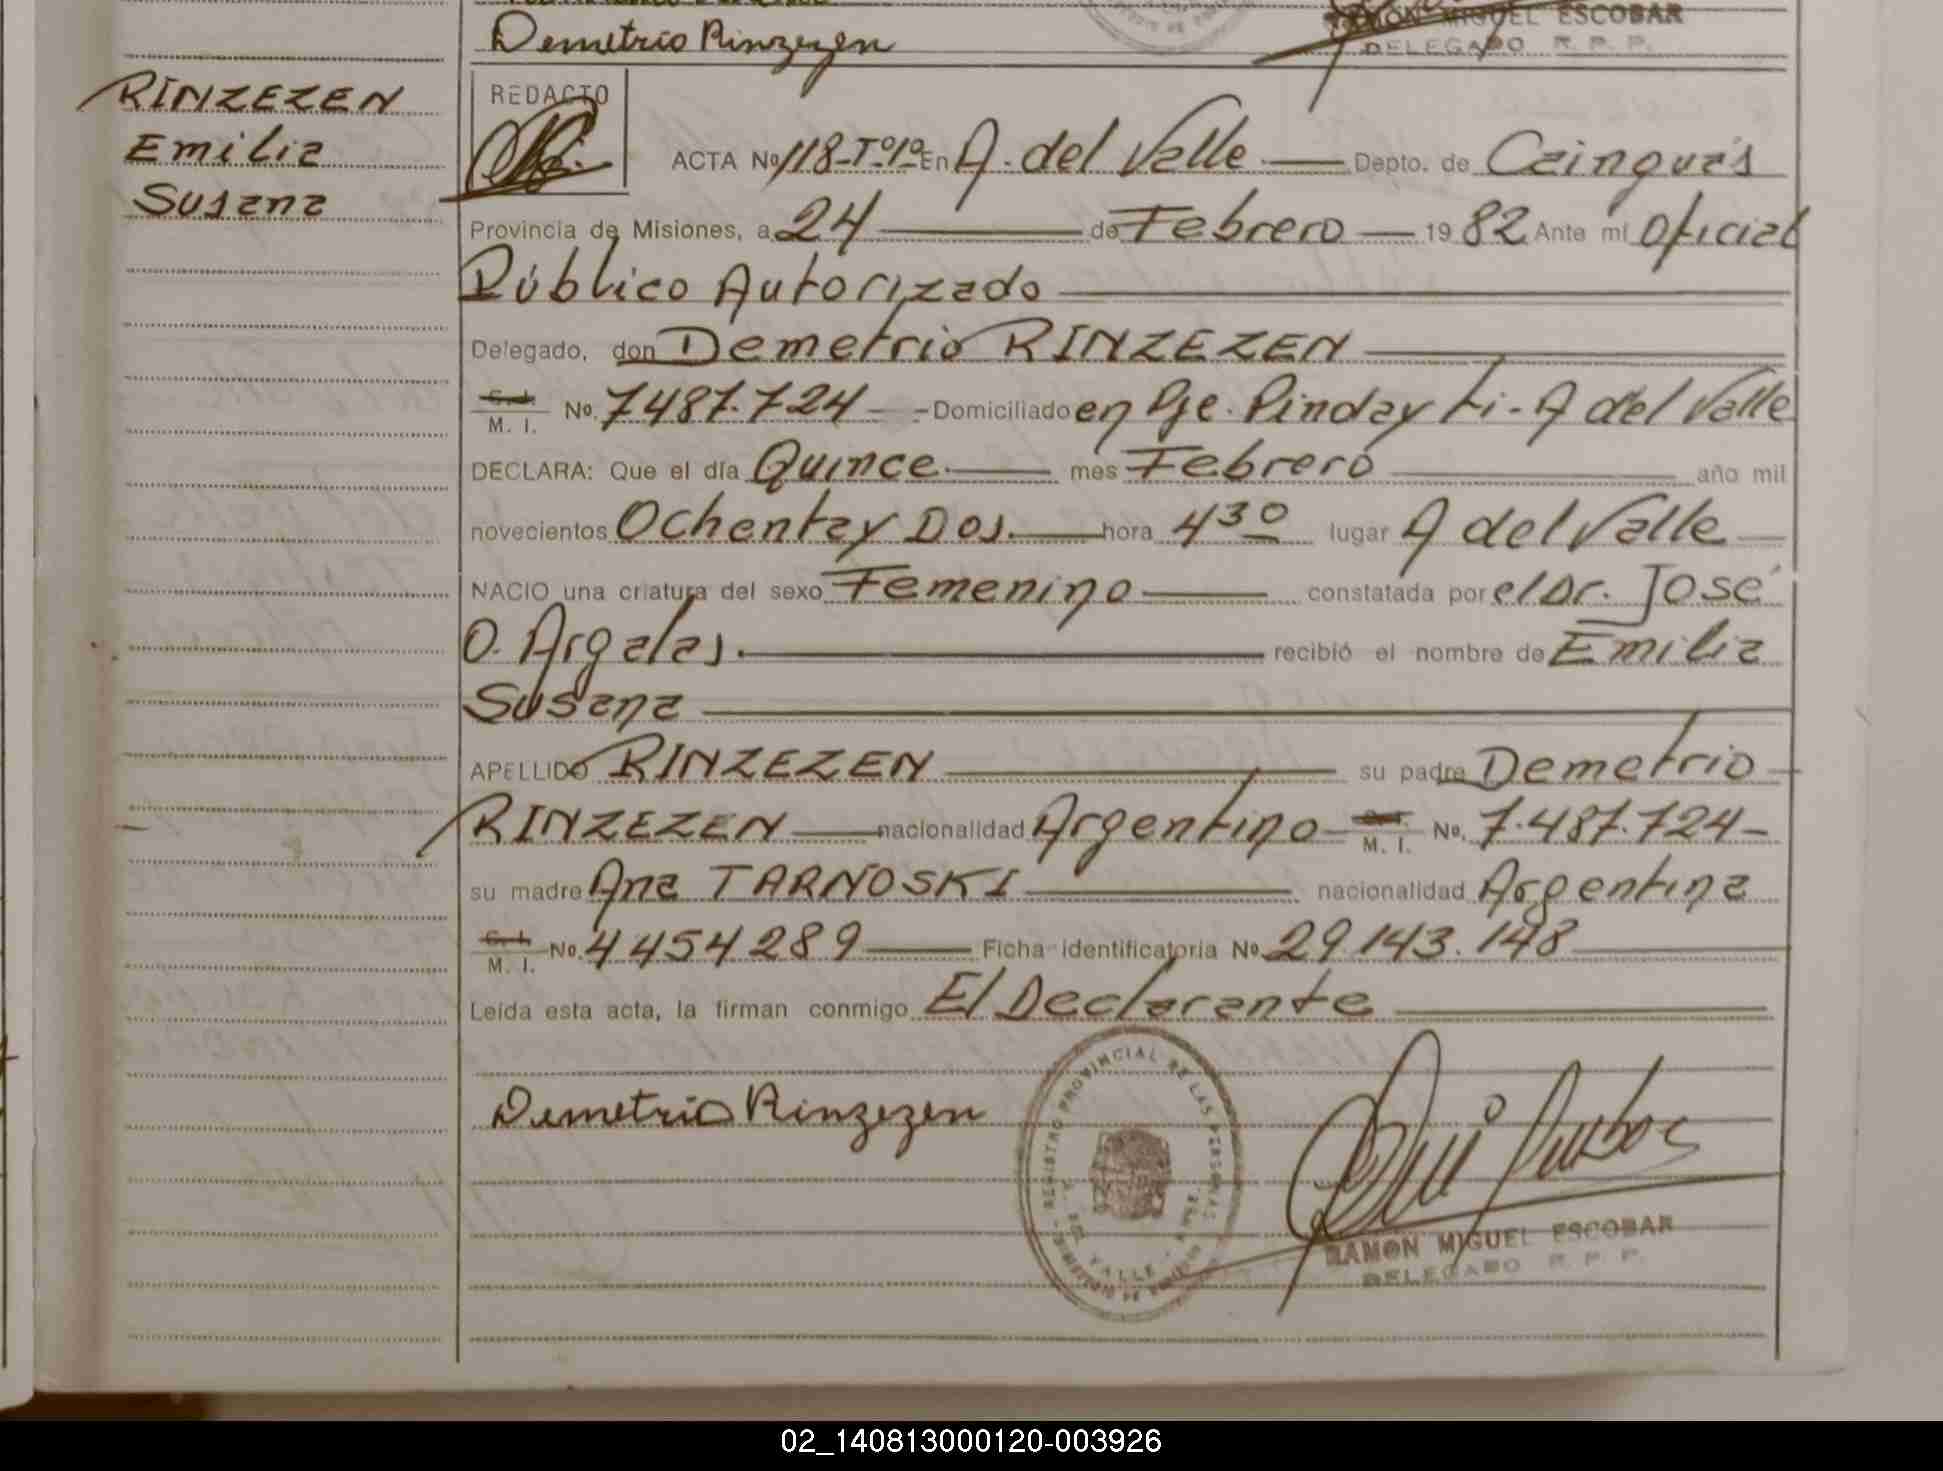 Demetrio Rinzezen
RAMON MIGUEL ESCOBAR
DELEGADO R. P. P.
RINZEZEN
Emilia
Susana
REDACTO
ACTA Nº 118-Tº1º En A. del Valle Depto. de Cainguás
Provincia de Misiones, a 24 de Febrero 19 82 Ante mi Oficial
Público Autorizado
Delegado, don Demetrio RINZEZEN
C. I.
M. I. Nº. 7487.724 - Domiciliado en Pje. Pindayti - A del Valle
DECLARA: Que el día Quince. mes Febrero año mil
novecientos Ochenta y Dos. hora 4 30 lugar A del Valle
NACIO una criatura del sexo Femenino constatada por el Dr. José
O. Argalas. recibió el nombre de Emilia
Susana
APELLIDO RINZEZEN su padre Demetrio
RINZEZEN nacionalidad Argentino C. I. M. I. Nº. 7.487.724-
su madre Ana TARNOSKI nacionalidad Argentina
C. I.
M. I. Nº. 4454289 Ficha identificatoria Nº 29.143.148
Leída esta acta, la firman conmigo El Declarante
Demetrio Rinzezen
REGISTRO PROVINCIAL DE LAS PERSONAS
A. DEL VALLE
RAMON MIGUEL ESCOBAR
DELEGADO R. P. P.
02_140813000120-003926